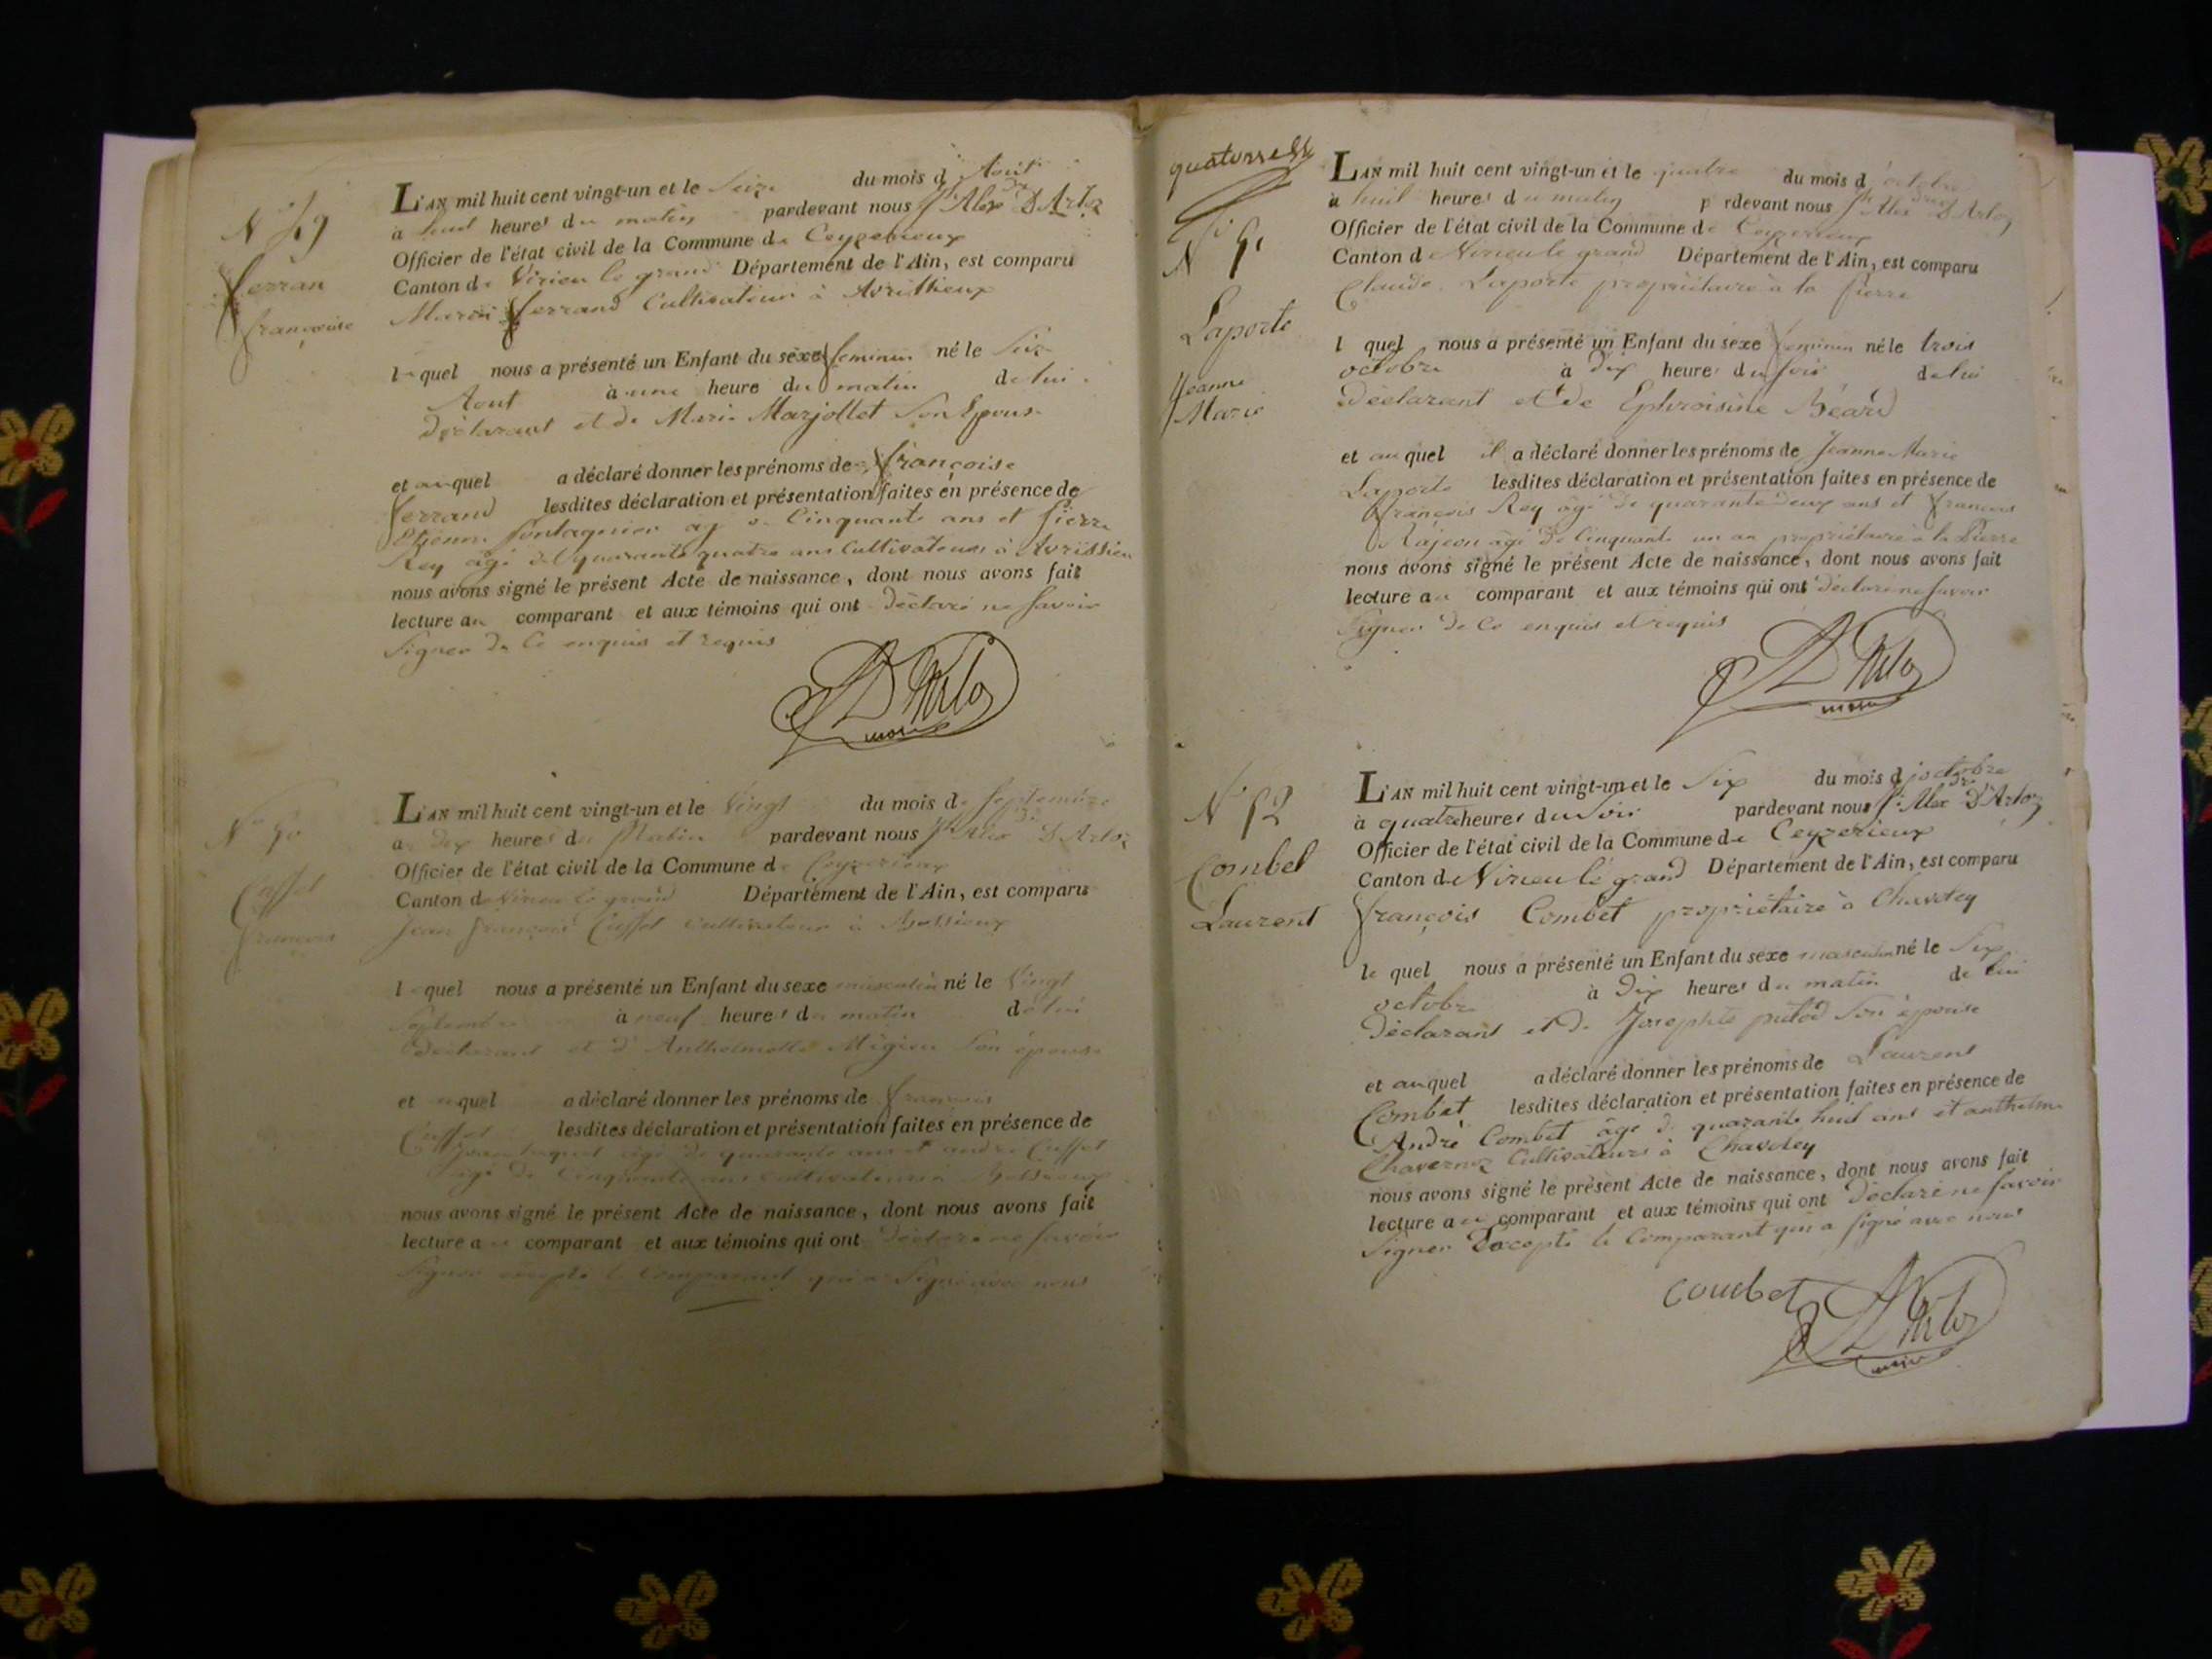 N° 49
ferran
françoise
L'AN mil huit cent vingt-un et le Seize du mois d'Aout
à huit heures du matin pardevant nous Jh Alexdre D'Arloz
Officier de l'état civil de la Commune de Ceyzerieux
Canton de Virieu le grand Département de l'Ain, est comparu
Marin ferrand Cultivateur à Avrissieux
lequel nous a présenté un Enfant du sexe feminin né le Seize
Aout à une heure du matin de lui
déclarant et de Marie Marjollet Son Epouse
et auquel a déclaré donner les prénoms de françoise
ferrand lesdites déclaration et présentation faites en présence de
Etienne âgé de Cinquante ans et pierre
Rey âgé de quarante quatre ans Cultivateurs à Avrissieu
nous avons signé le présent Acte de naissance, dont nous avons fait
lecture au comparant et aux témoins qui ont déclaré ne savoir
Signer de Ce enquis et requis
D'Arloz
maire
N° 50
Cusset
françois
L'AN mil huit cent vingt-un et le Vingt du mois de Septembre
à dix heures du Matin pardevant nous Jh Alex D'Arloz
Officier de l'état civil de la Commune de Ceyzerieux
Canton de Virieu le grand Département de l'Ain, est comparu
Jean françois Cusset cultivateur à
lequel nous a présenté un Enfant du sexe masculin né le Vingt
Septembre à neuf heures du matin de lui
déclarant et d'Anthelmette Migieu Son épouse
et auquel a déclaré donner les prénoms de françois
Cusset lesdites déclaration et présentation faites en présence de
âgé de quarante ans et andré Cusset
âgé de Cinquante ans cultivateurs à
nous avons signé le présent Acte de naissance, dont nous avons fait
lecture au comparant et aux témoins qui ont déclaré ne savoir
Signer excepté le Comparant qui a Signé avec nous
quatorze
N° 51
Laporte
Jeanne
Marie
L'AN mil huit cent vingt-un et le quatre du mois d'octobre
à huit heures du matin p rdevant nous Jh Alexdre D'Arloz
Officier de l'état civil de la Commune de Ceyzerieux
Canton de Virieu le grand Département de l'Ain, est comparu
Claude Laporte propriétaire à la pierre
l quel nous a présenté un Enfant du sexe feminin né le trois
octobre à dix heures du soir de lui
déclarant et de Ephroisine Béard
et au quel il a déclaré donner les prénoms de Jeanne Marie
Laporte lesdites déclaration et présentation faites en présence de
françois Rey âgé de quarante deux ans et françois
Rajeon âgé de Cinquante un an propriétaire à la Pierre
nous avons signé le présent Acte de naissance, dont nous avons fait
lecture au comparant et aux témoins qui ont déclaré ne savoir
Signer de Ce enquis et requis
D'Arloz
maire
N° 52
Combet
Laurent
L'AN mil huit cent vingt-un et le Six du mois d'octobre
à quatre heures du Soir pardevant nous Jh Alexdre D'Arloz
Officier de l'état civil de la Commune de Ceyzerieux
Canton de Virieu le grand Département de l'Ain, est comparu
françois Combet propriétaire à Chavoley
le quel nous a présenté un Enfant du sexe masculin né le Six
octobre à Dix heures du matin de lui
Déclarant et de Josephte putod Son épouse
et auquel a déclaré donner les prénoms de Laurent
Combet lesdites déclaration et présentation faites en présence de
André Combet âgé de quarante huit ans et anthelme
Chavernoz Cultivateurs à Chavoley
nous avons signé le présent Acte de naissance, dont nous avons fait
lecture au comparant et aux témoins qui ont Déclaré ne savoir
Signer Excepté le Comparant qui a signé avec nous
Combet
D'Arloz
maire